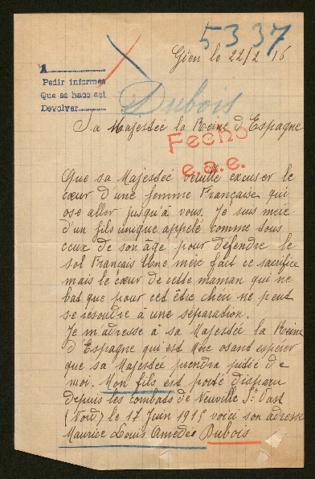 5337
Gien le 22/2 16
A
Pedir informes
Que se haga así
Devolver
Dubois
Sa Majestée la Reine d'Espagne
Fecho
e.a.e.
Que sa Majestée veuille excuser le
cœur d'une femme Française qui
ose aller jusqu'à vous. Je suis mère
d'un fils unique appelé comme tous
ceux de son âge pour défendre le
sol Français Une mère fait ce sacrifice
mais le cœur de cette maman qui ne
bat que pour cet être cher ne peut
se resoudre à une séparation.
Je m'adresse à sa Majestée la Reine
d'Espagne qui est Mère osant espérer
que sa Majestée prendra pitiée de
moi. Mon fils est porté disparu
depuis les combats de Neuville St Vast
le 17 Juin 1915 voici son adresse
Maurice Louis Amédée Dubois